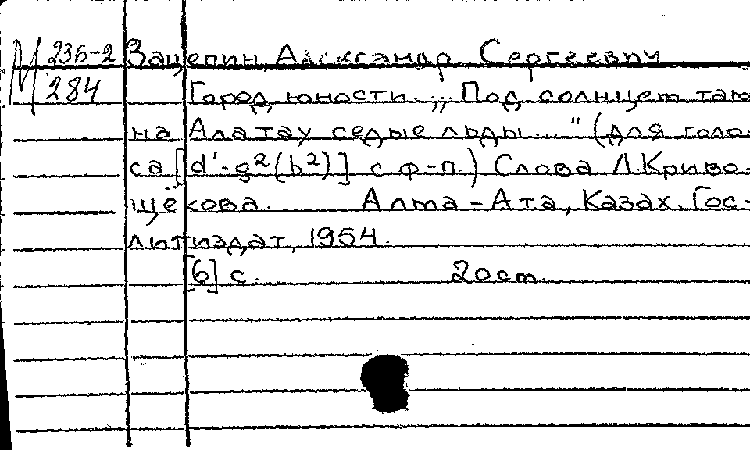 М 235-2 Зацепин, Александр Сергеевич
284 Город юности. „Под солнцем там
на Алатау седые льды..." (для голо-
са [d'-g²(b²)] с ф-п.) Слова Л. Криво-
щёкова. Алма-Ата, Казах. Гос-
литиздат, 1954.
[6] с. 20 см.